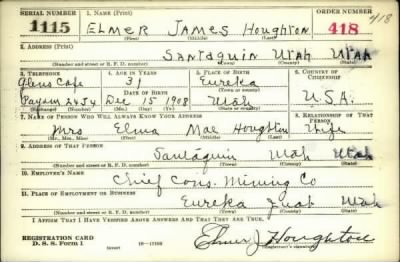 SERIAL NUMBER 1. NAME (Print) ORDER NUMBER 418
1115 ELMER JAMES Houghton 418
(First) (Middle) (Last)
2. ADDRESS (Print)
SANTAQUIN UtAH UtAH
(Number and street or R. F. D. number) (Town) (County) (State)
3. TELEPHONE 4. AGE IN YEARS 5. PLACE OF BIRTH 6. COUNTRY OF CITIZENSHIP
Glens Cafe 31 Eureka
DATE OF BIRTH (Town or county)
Payson 2454 Dec 15 1908 Utah U.S.A.
(Exchange) (Number) (Mo.) (Day) (Yr.) (State or country)
7. NAME OF PERSON WHO WILL ALWAYS KNOW YOUR ADDRESS 8. RELATIONSHIP OF THAT PERSON
Mrs Elma Mae Houghton Wife
(Mr., Mrs., Miss) (First) (Middle) (Last)
9. ADDRESS OF THAT PERSON
Santaquin Utah Utah
(Number and street or R. F. D. number) (Town) (County) (State)
10. EMPLOYER'S NAME
Chief Cons. Mining Co
11. PLACE OF EMPLOYMENT OR BUSINESS
Eureka Juab Utah
(Number and street or R. F. D. number) (Town) (County) (State)
I AFFIRM THAT I HAVE VERIFIED ABOVE ANSWERS AND THAT THEY ARE TRUE.
REGISTRATION CARD
D. S. S. Form 1 Elmer J Houghton
(Registrant's signature)